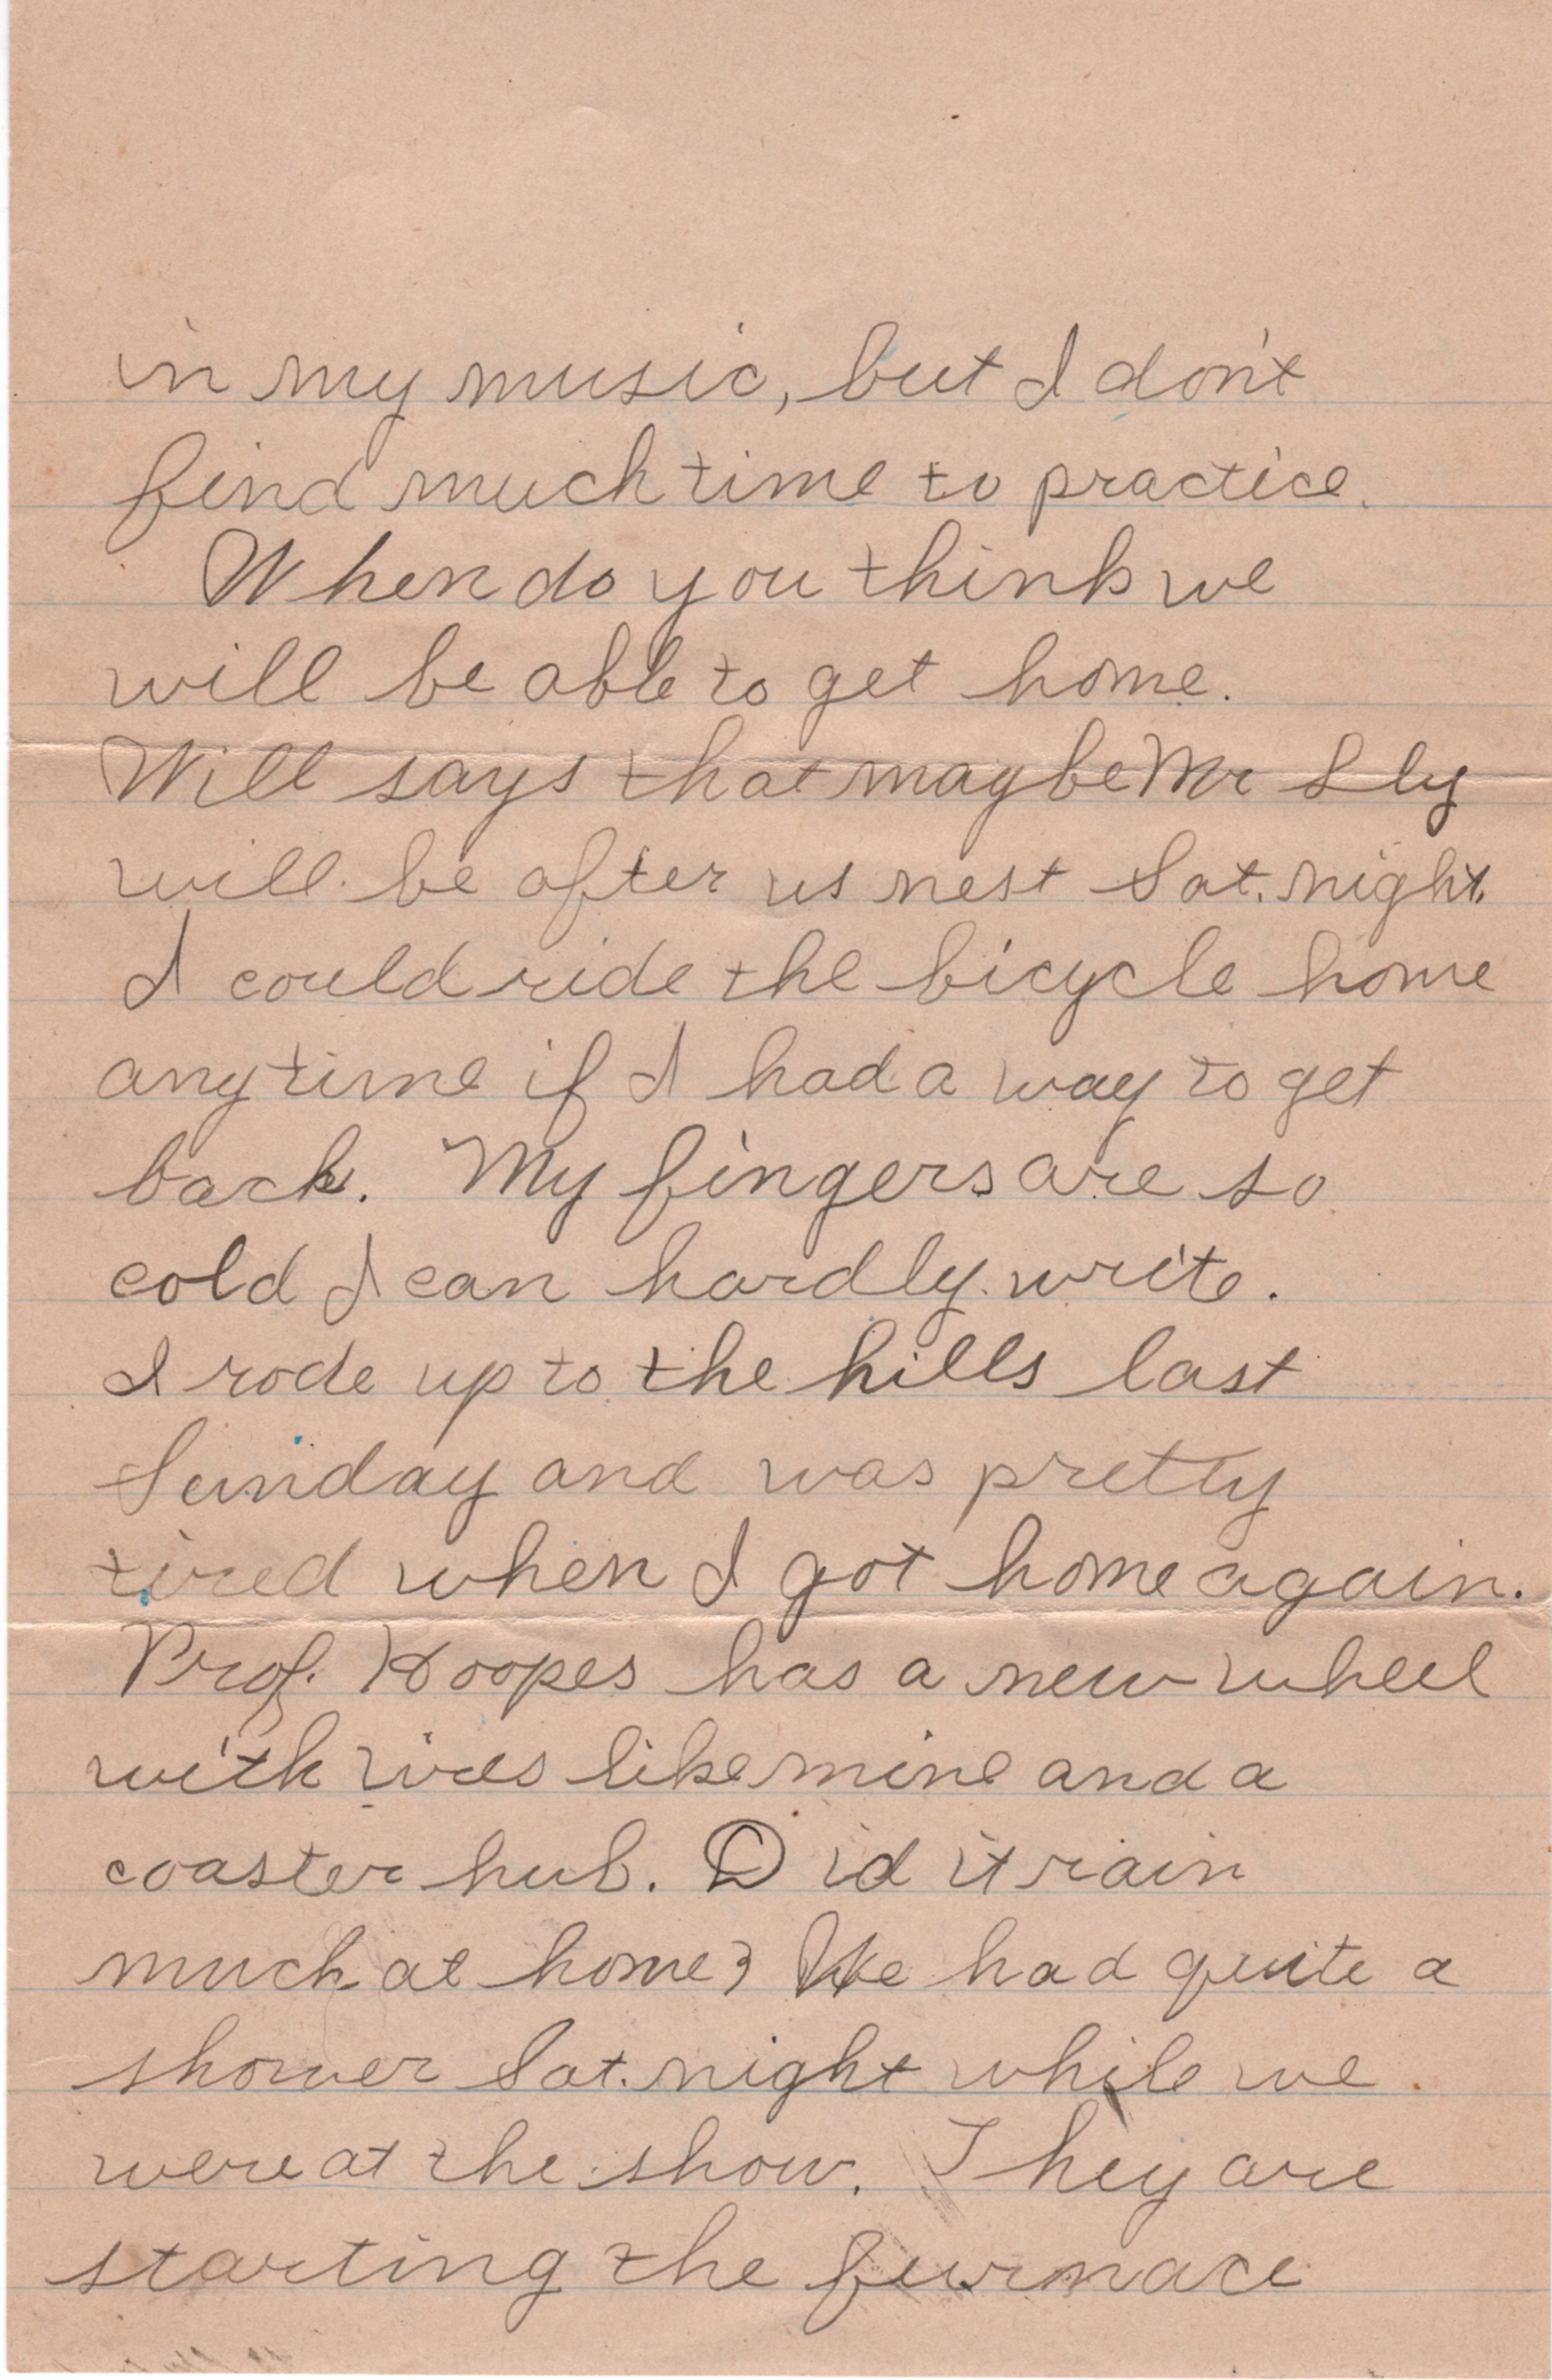 in my music, but I don't
find much time to practice.
When do you think we
will be able to get home.
Will says that maybe Mr Sly
will be after us nest Sat. night.
I could ride the bicycle home
any time if I had a way to get
back. My fingers are so
cold I can hardly write.
I rode up to the hills last
Sunday and was pretty
tired when I got home again.
Prof. Hoopes has a new wheel
with like mine and a
coaster hub. Did it rain
much at home? We had quite a
shower Sat. night while we
were at the show. They are
starting the furnace